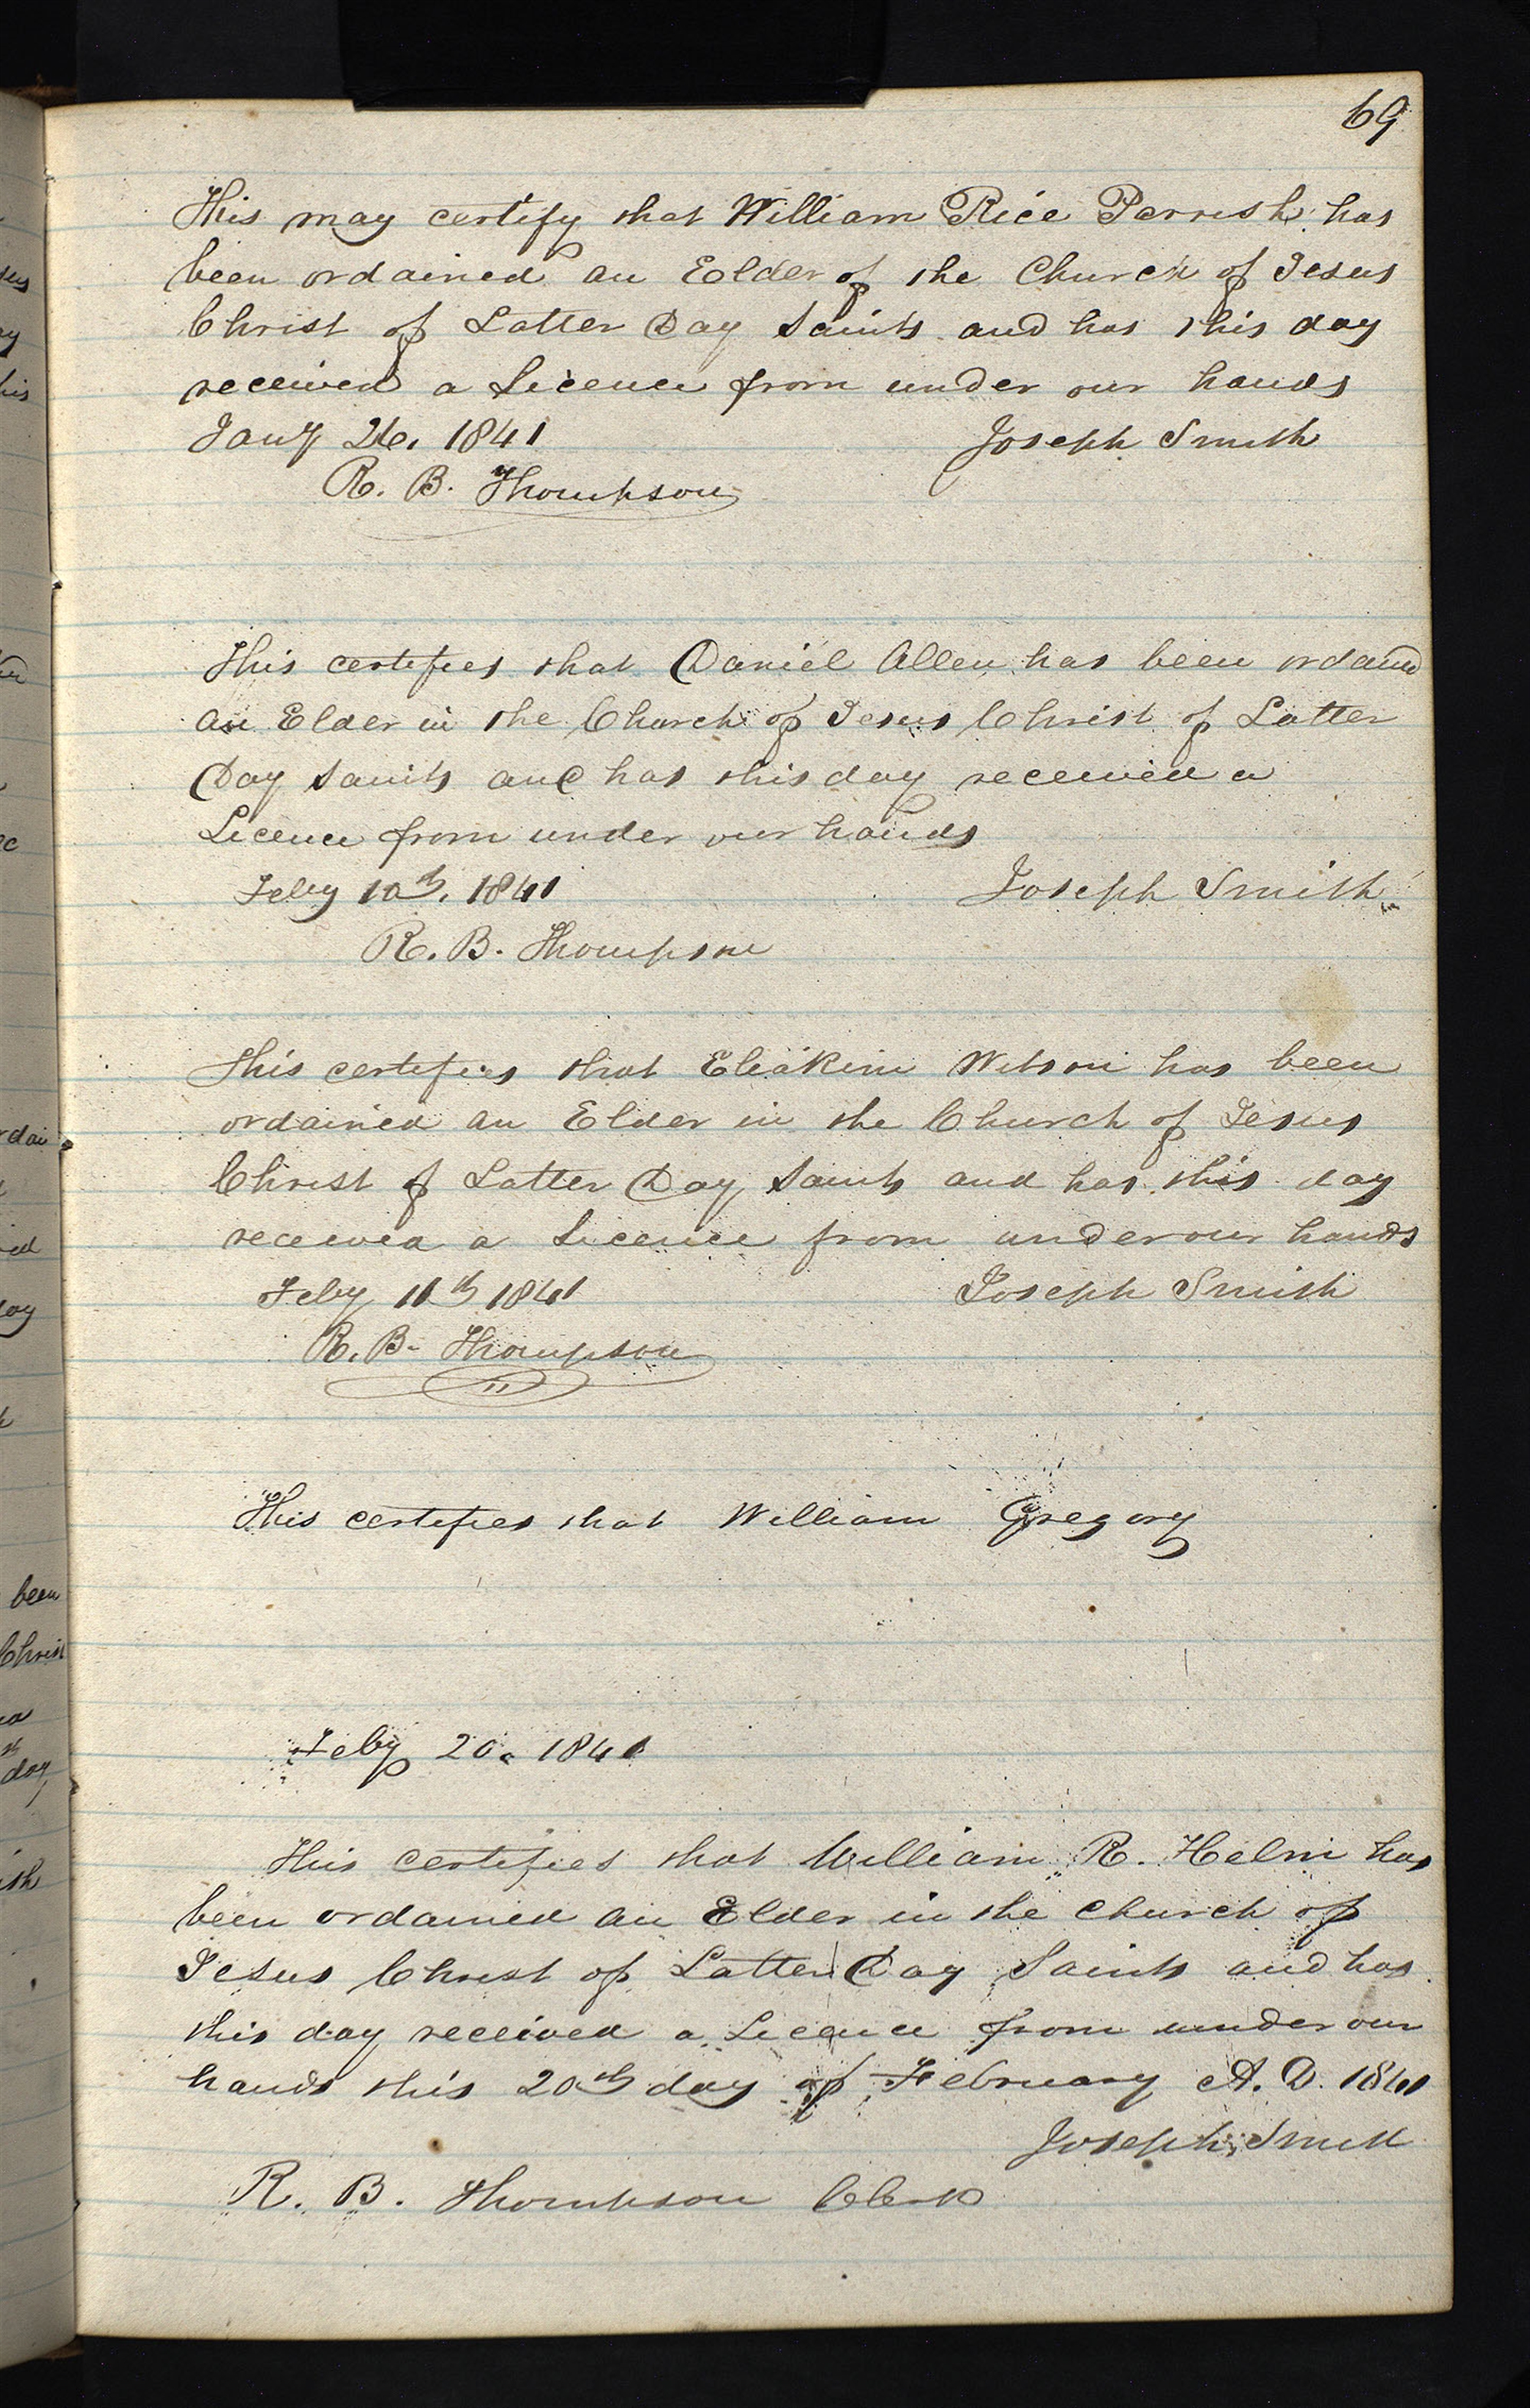 69
This may certify that William Rice Parrish has
been ordained an Elder of the Church of Jesus
Christ of Latter Day Saints and has this day
received a Licence from under our hands
Jany 26, 1841 Joseph Smith
R. B. Thompson
This certifies that Daniel Allen has been ordaind
an Elder in the Church of Jesus Christ of Latter
Day Saints and has this day received a
Licence from under our hands
Feby 10th, 1841 Joseph Smith
R. B. Thompson
This certifies that Eliakim Wilson has been
ordained an Elder in the Church of Jesus
Christ of Latter Day Saints and has this day
received a Licence from under our hands
Feby 11th 1841 Joseph Smith
R. B. Thompson
This certifies that William Gregory
Feby 20. 1841
This certifies that William R. Helm has
been ordained an Elder in the church of
Jesus Christ of Latter Day Saints and has
this day received a Licence from under our
hands this 20th day of February A. D. 1841
Joseph Smith
R. B. Thompson Clerk